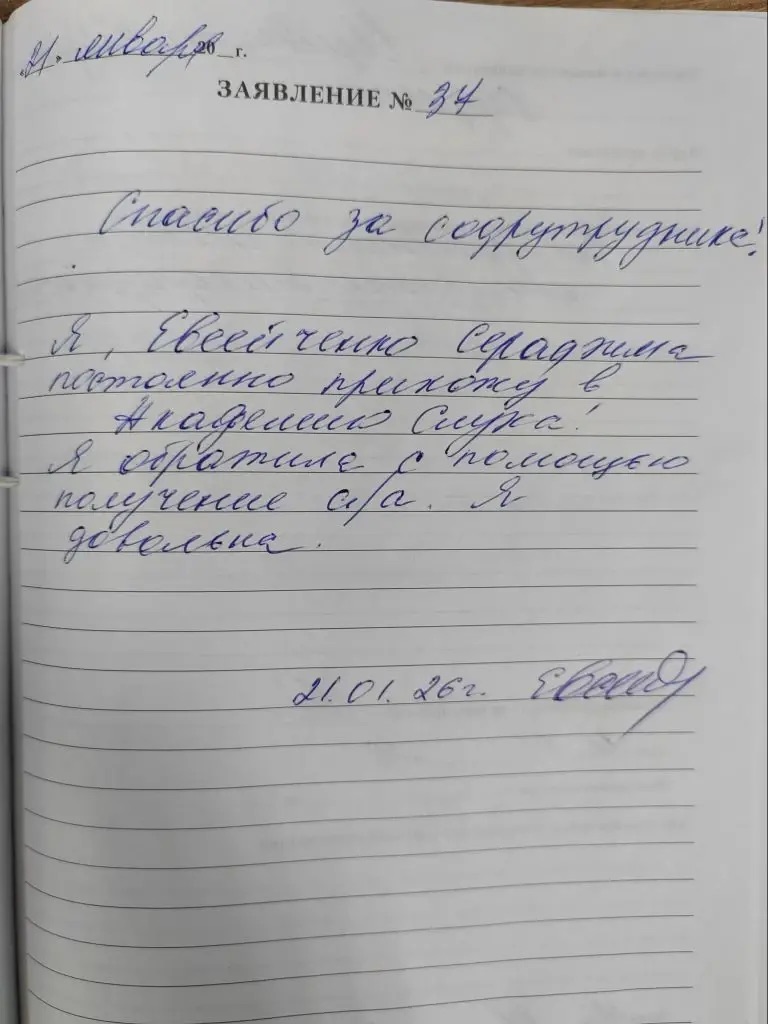 "21" января 20__г.
ЗАЯВЛЕНИЕ № 34
Спасибо за содрутруднике!
Я, Евсейченко Сераджима
постоянно прихожу в
Академию Слуха!
Я обратила с помощью
получение с/а. Я
довольна.
21.01.26г.